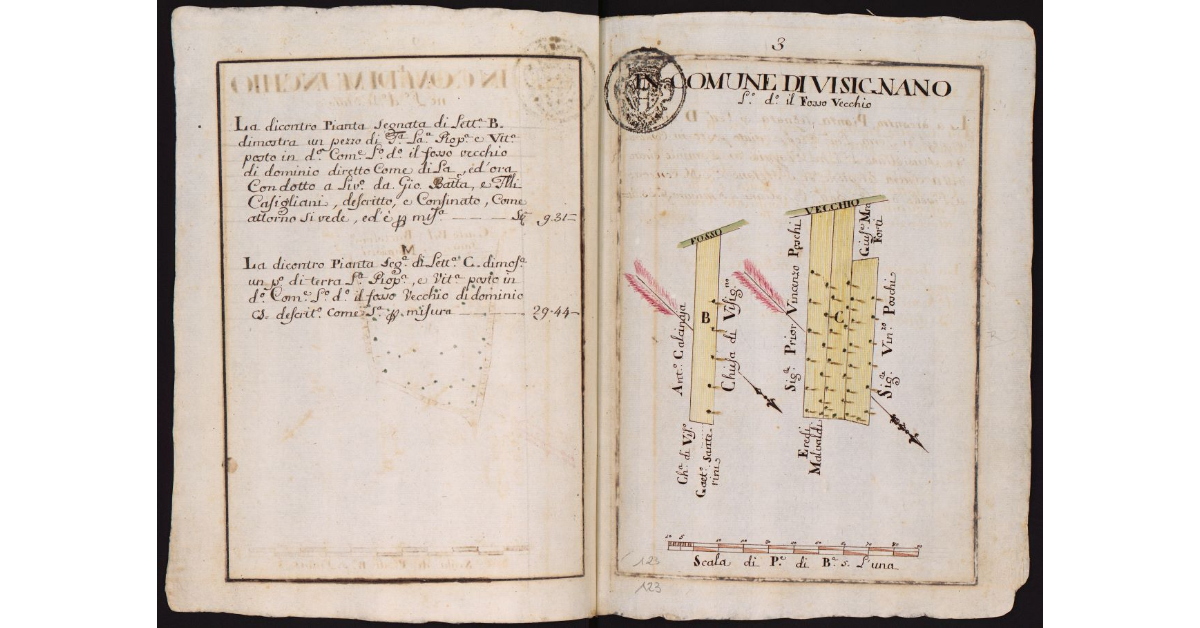 La dicontro Pianta segnata di Lett.ª B.
dimostra un pezzo di T.ª La.ª Piop.ª e Vit.ª
posto in d.º Com.e L.º d.º il fosso vecchio
di dominio diretto Come di Sa, ed'ora
Condotto a Liv.º da Gio Batta, e Flli
Casigliani, descritto, e Confinato, Come
attorno si vede, ed'è p mis.ª 9.31
La dicontro Pianta Seg.ª di Lett.ª C. dimos.ª
un p.º di terra L.ª Piop.ª, e Vit.ª posto in
d.º Com.e L.º d.º il fosso Vecchio di dominio
descrit.º Come S.ª p. misura 29.44
3
IN COMUNE DI VISIGNANO
L.º d.º il Fosso Vecchio
FOSSO
VECCHIO
B
C
Ant.º Calcinaja
Chiesa di Visig.no
Ch.ª di Vis.º
Gaet.º Sante-
rini
Sig.ª Prior Vincenzo Poschi
Gius.e Mra
Forti
Sig.ª Vin.zo Poschi
Eredi
Malvaldi
10 5 10 20 30 40 50 60 70 80 90
Scala di P.e di B.ª 5. L'una
123
123